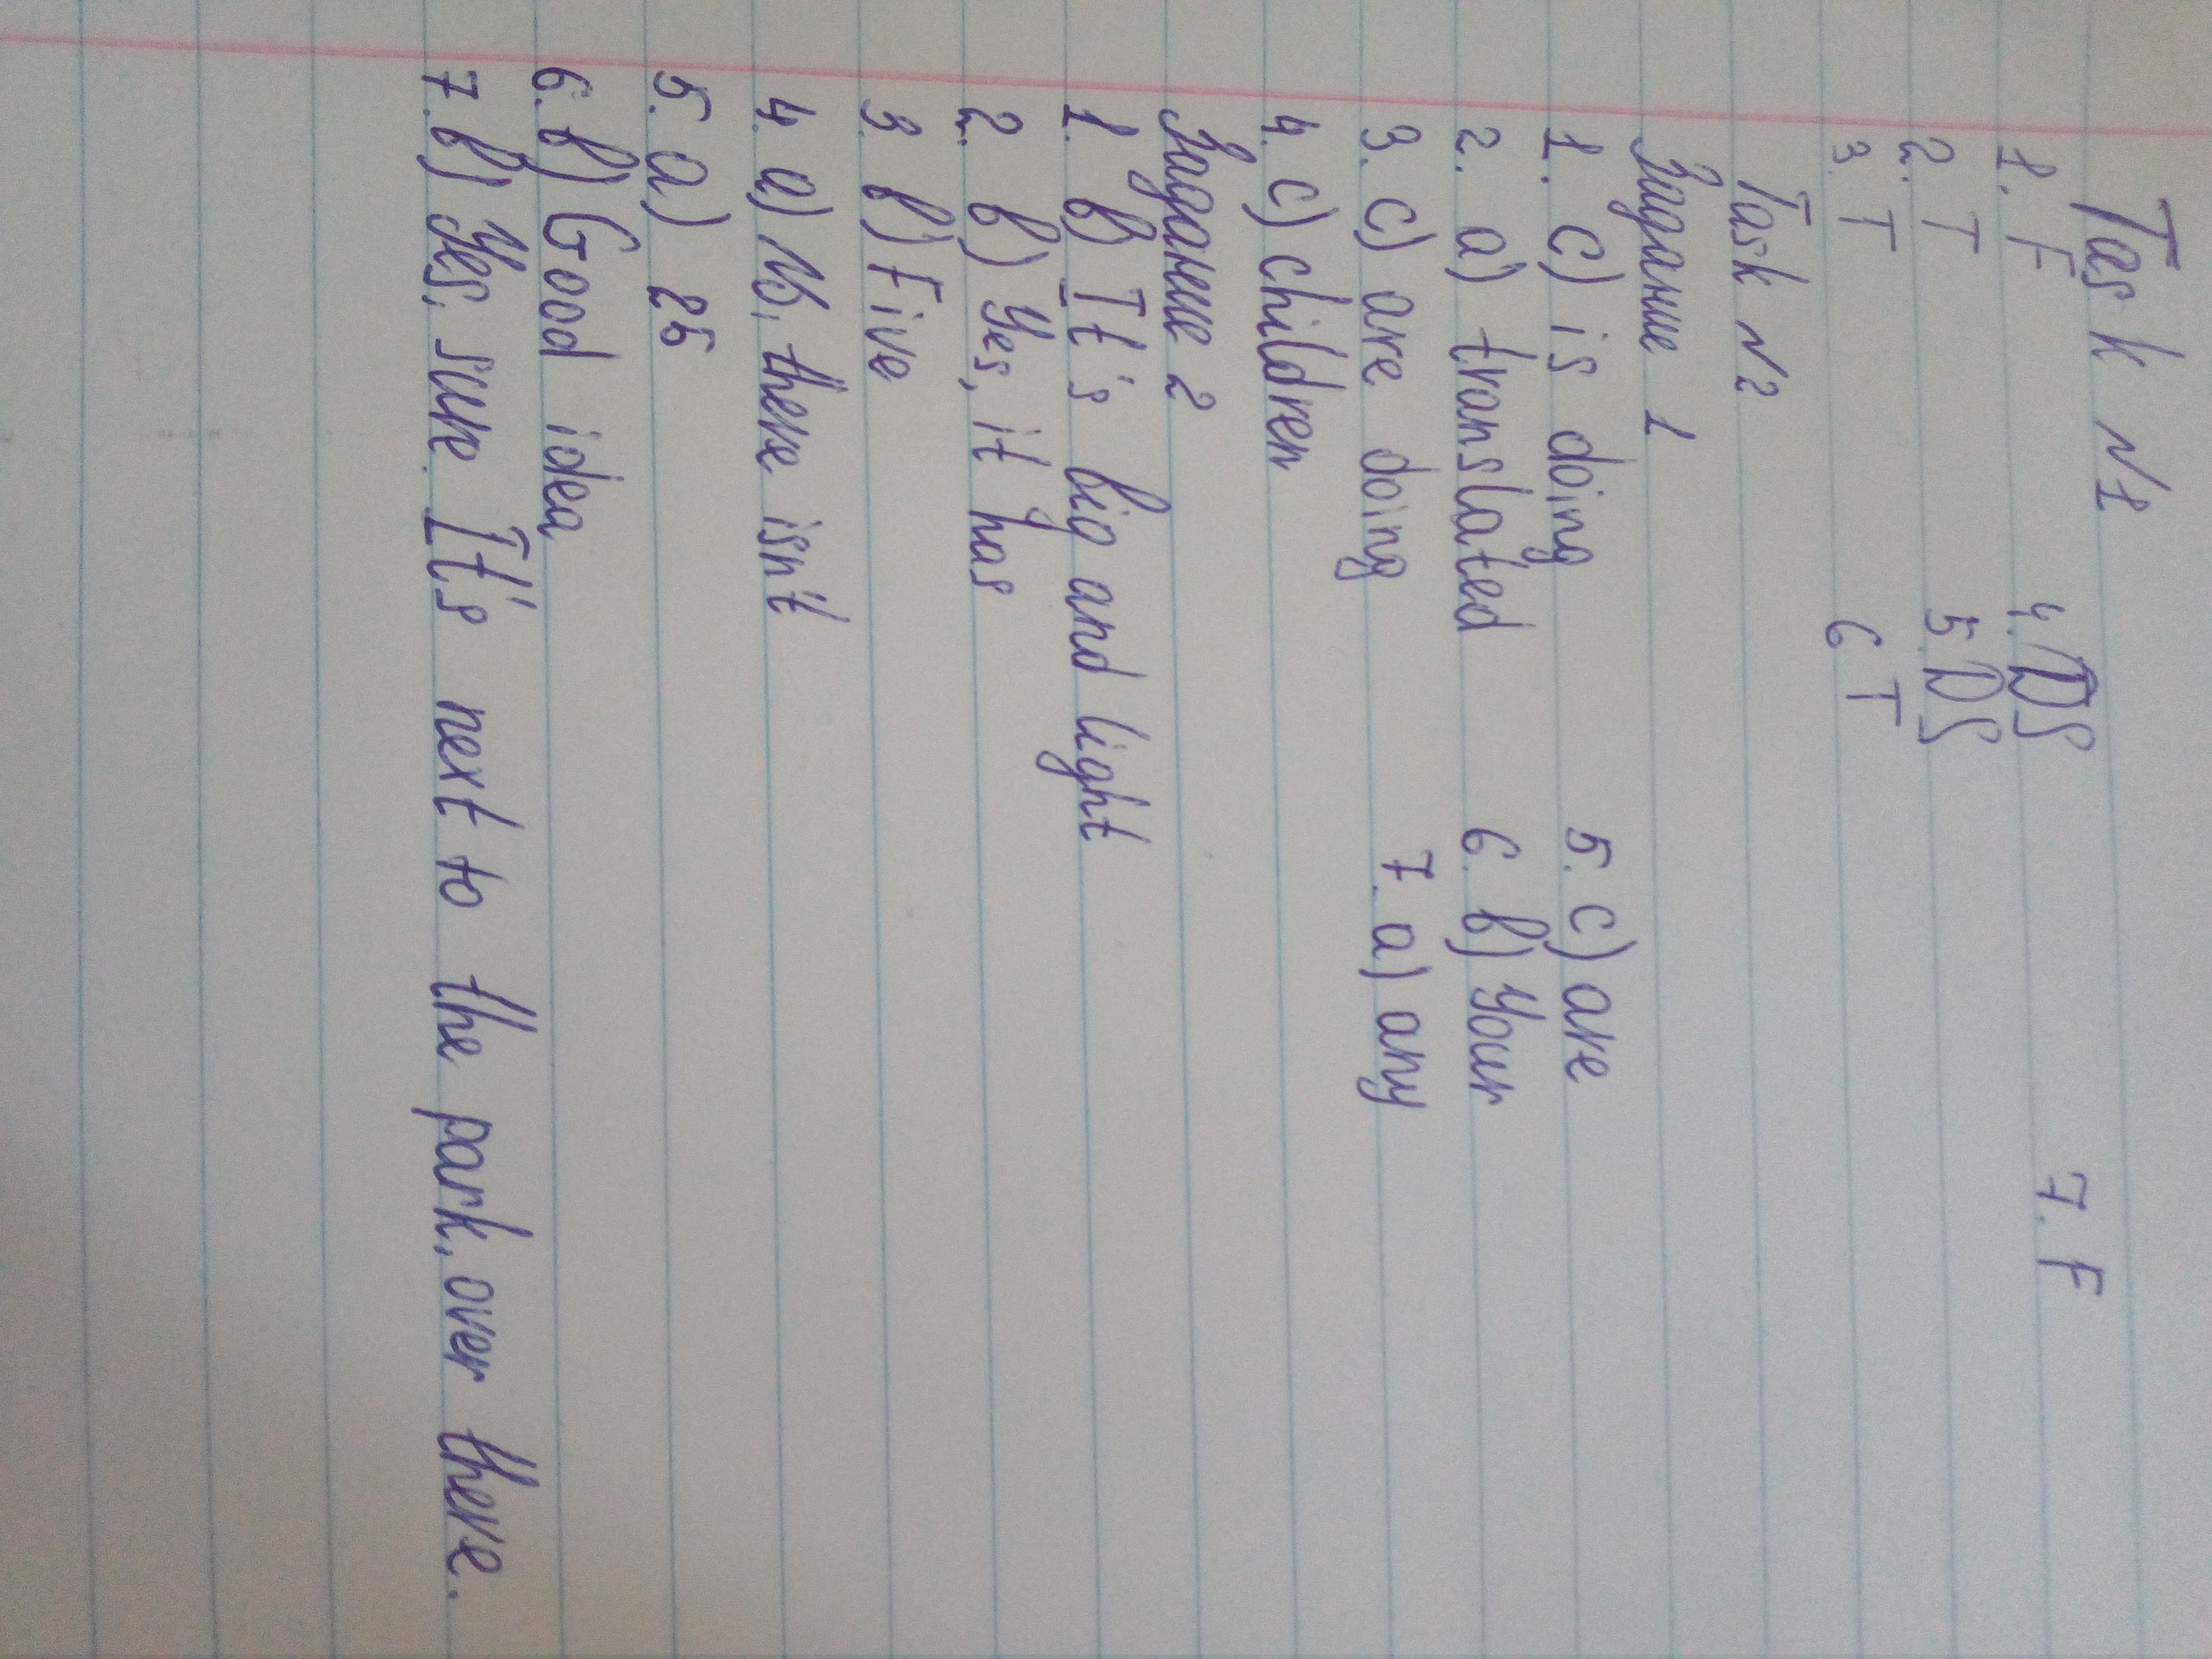 Task №1
1. F 4. DS 7. F
2. T 5. DS
3. T 6 T
Task №2
Задание 1
1. c) is doing 5. c) are
2. a) translated 6. b) your
3. c) are doing 7. a) any
4. c) children
Задание 2
1. b) It is big and light
2. b) Yes, it has
3. b) Five
4. a) No, there isn't
5. a) 25
6. b) Good idea
7. b) Yes, sure. It's next to the park, over there.